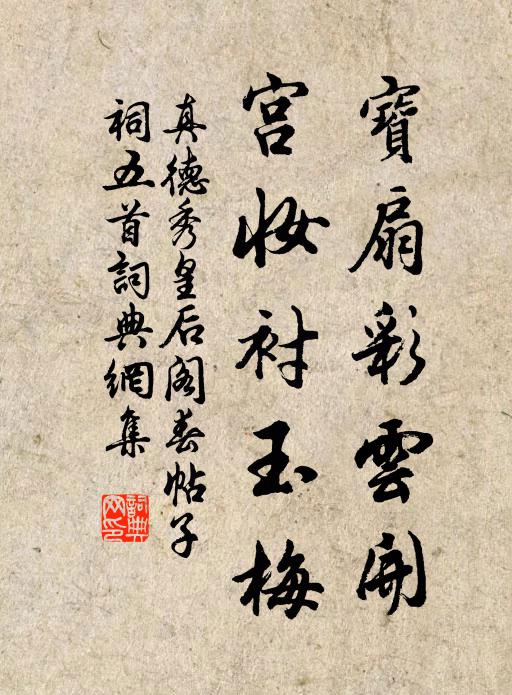 寶扇彩雲開
宫妝衬玉梅
真德秀皇后阁春帖子
祠五首詞典網集
詞典网印